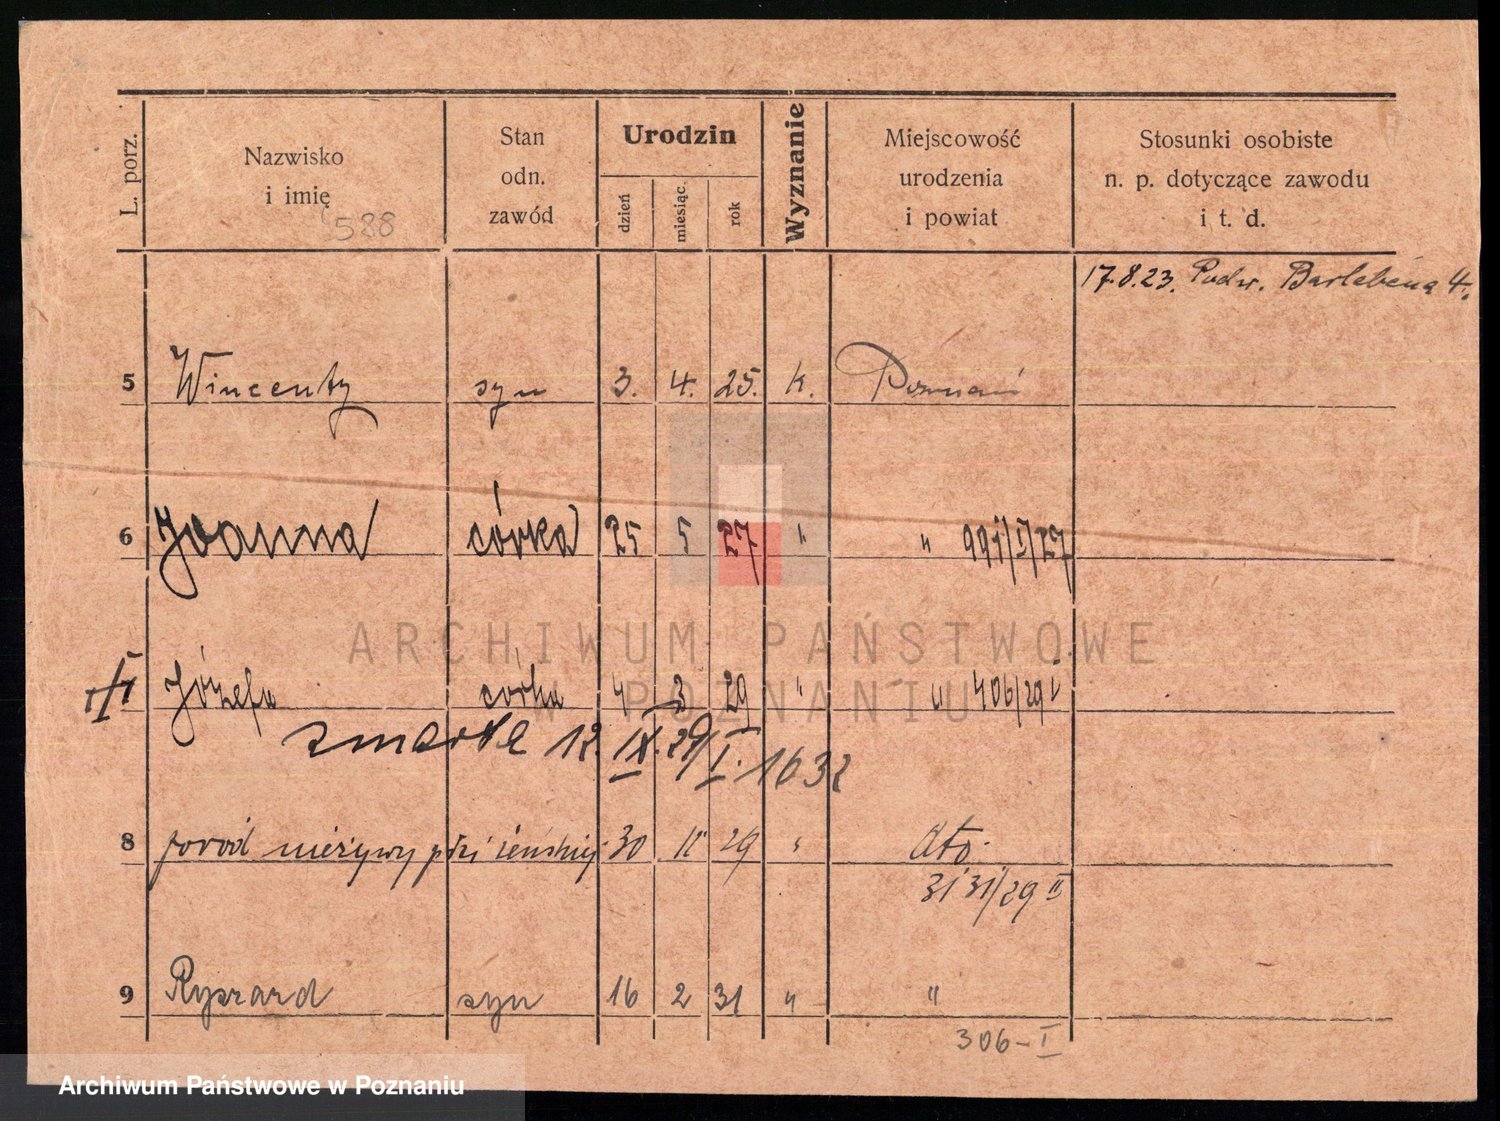 L. porz.
Nazwisko i imię
588
Stan odn. zawód
Urodzin
dzień miesiąc. rok
Wyznanie
Miejscowość urodzenia i powiat
Stosunki osobiste n. p. dotyczące zawodu i t. d.
17.8.23. Podw. Barlebena 4.
5 Wincenty syn 3. 4. 25. k. Poznań
6 Joanna córka 25 5 27 " " 991/I/27
Józefa córka 4 3 29 " " 406/29 I
zmarła 12. IX. 29/I. 1632
8 poród nieżywy płci żeńskiej 30 11 29 "
3131/29 II
9 Ryszard syn 16 2 31 " "
306-I
ARCHIWUM PAŃSTWOWE
W POZNANIU
Archiwum Państwowe w Poznaniu